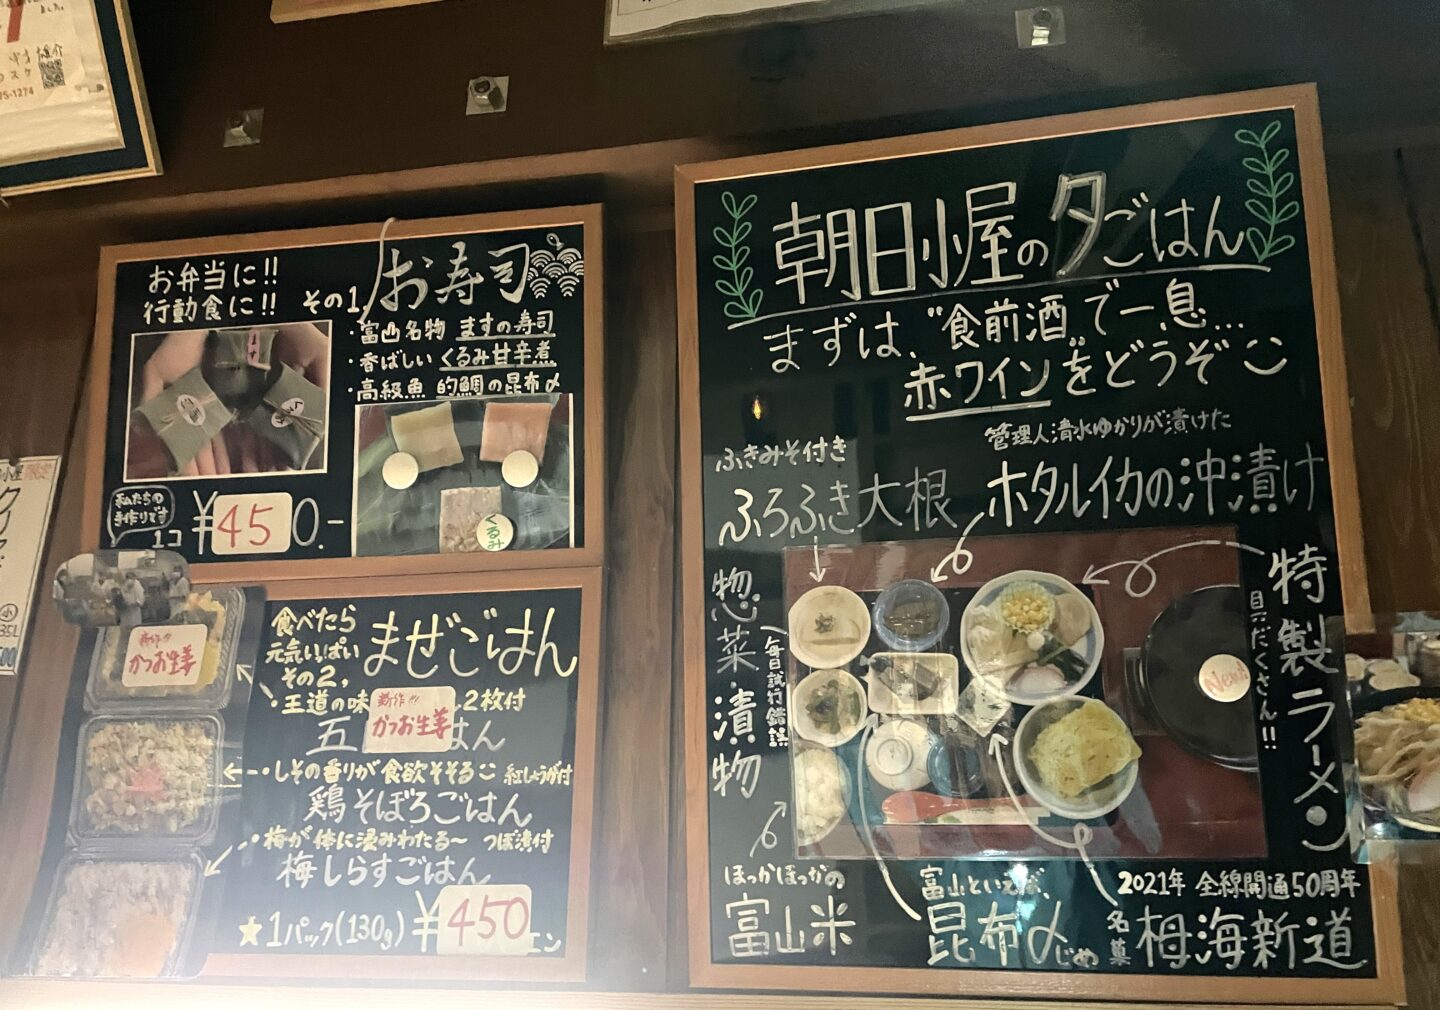 お弁当に!!
行動食に!!
その1
お寿司
・富山名物 ますの寿司
・香ばしい くるみ甘辛煮
・高級魚 的鯛の昆布〆
くるみ
私たちの
手作りです
1コ ¥450.-
食べたら
元気いっぱい
その2,
まぜごはん
新作!!
かつお生姜
・王道の味
2枚付
新作!!
かつお生姜
五
はん
・しその香りが食欲そそる 紅しょうが付
鶏そぼろごはん
・梅が体に浸みわたる〜 つぼ漬付
梅しらすごはん
★1パック(130g) ¥450エン
朝日小屋の夕ごはん
まずは、"食前酒"で一息...
赤ワインをどうぞ
管理人清水ゆかりが漬けた
ホタルイカの沖漬け
ふきみそ付き
ふろふき大根
惣菜・漬物
毎日試行錯誤
特製ラーメン
具だくさん!!
New!
ほっかほっかの
富山米
富山といえば、
昆布〆
じめ
2021年 全線開通50周年
名菓 栂海新道
75-1274